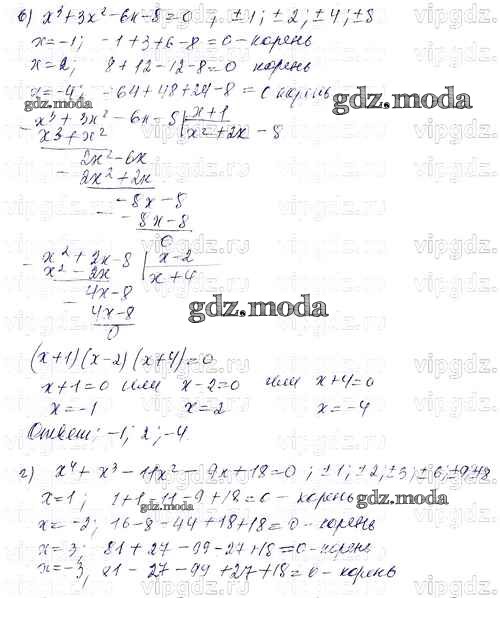 в) x³+3x²-6x-8=0 , ±1; ±2; ±4; ±8
x=-1; -1+3+6-8=0-корень
x=2; 8+12-12-8=0 корень
x=-4; -64+48+24-8=0 корень
gdz.moda
x³+3x²-6x-8 | x+1
x³+x² x²+2x-8
2x²-6x
2x²+2x
-8x-8
-8x-8
0
x²+2x-8 | x-2
x²-2x x+4
4x-8
4x-8
0
gdz.moda
(x+1)(x-2)(x+4)=0
x+1=0 или x-2=0 или x+4=0
x=-1 x=2 x=-4
Ответ: -1; 2; -4
gdz.moda
г) x⁴+x³-11x²-9x+18=0; ±1; ±2; ±3; ±6; ±9
x=1; 1+1-11-9+18=0-корень
gdz.moda
gdz.moda
x=-2; 16-8-44+18+18=0-корень
x=3; 81+27-99-27+18=0-корень
x=-3, 81-27-99+27+18=0-корень
vipgdz.ru